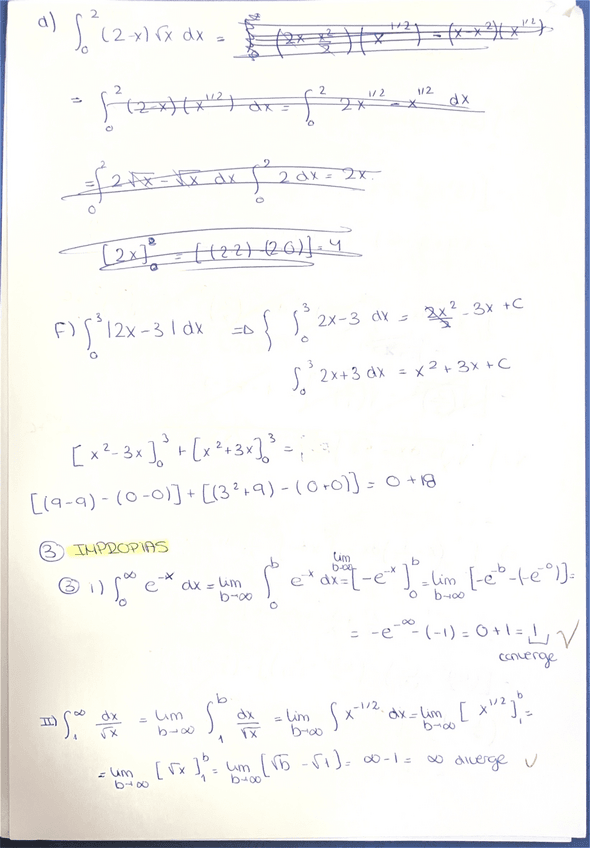 d) ∫₀² (2-x) √x dx = (2x x²/2) (x^1/2) - (x-x²)(x^1/2)
= ∫₀² (2-x)(x^1/2) dx = ∫₀² 2x^1/2 - x^1/2 dx
= ∫₀² 2√x - √x dx ∫₀² 2 dx = 2x
[2x]₀² = [(2·2) - (2·0)] = 4
F) ∫₀³ |2x-3| dx ⇒ { ∫₀³ 2x-3 dx = 2x²/2 - 3x + C
∫₀³ 2x+3 dx = x² + 3x + C
[x²-3x]₀³ + [x²+3x]₀³ =
[(9-9) - (0-0)] + [(3²+9) - (0+0)] = 0 + 18
③ IMPROPIAS
③ I) ∫₀^∞ e^-x dx = lim b→∞ ∫₀^b e^-x dx = lim b→∞ [-e^-x]₀^b = lim b→∞ [-e^-b - (-e^-0)] =
= -e^-∞ - (-1) = 0 + 1 = 1 ✓
converge
II) ∫₁^∞ dx/√x = lim b→∞ ∫₁^b dx/√x = lim b→∞ ∫ x^-1/2 dx = lim b→∞ [x^1/2]₁^b =
= lim b→∞ [√x]₁^b = lim b→∞ [√b - √1] = ∞ - 1 = ∞ diverge ✓